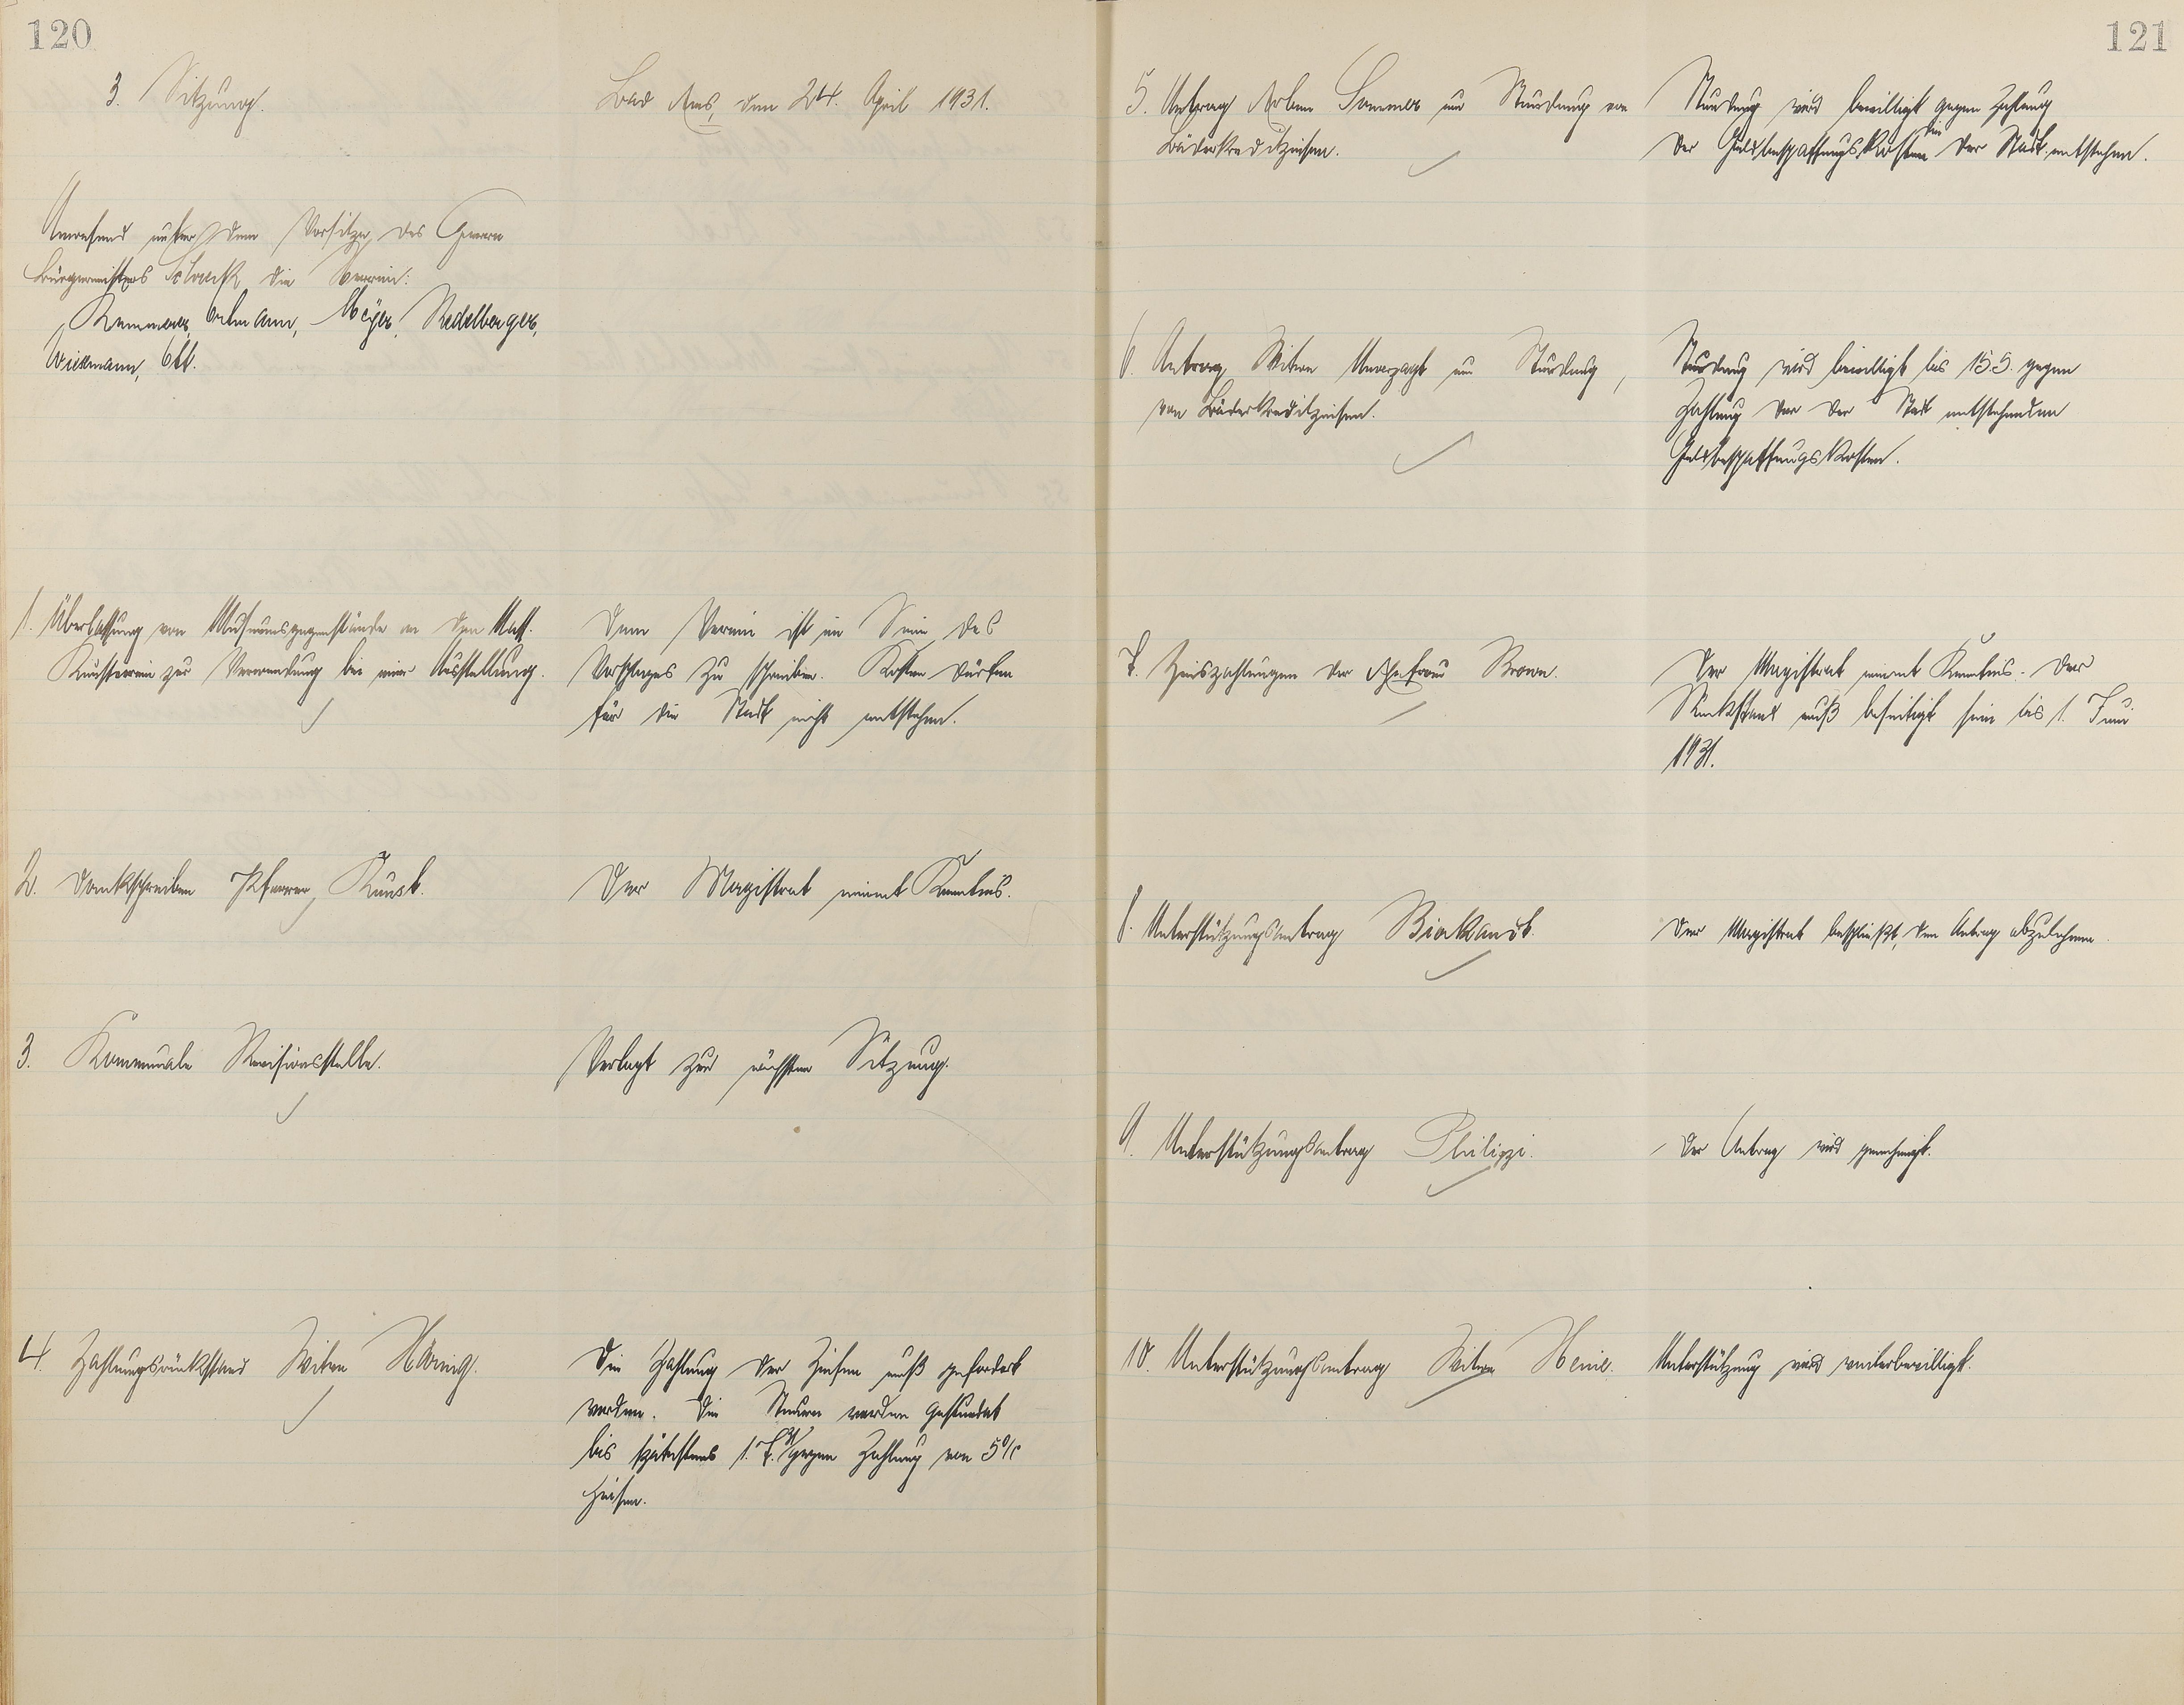 120
3. Sitzung.
Bad Ems, den 24. April 1931.
Anwesend unter dem Vorsitze des Herrn
Bürgermeisters Schreck die Herren:
Kemmerer, Ortmann, Meyer, Redelberger,
Wiesmann, Ott.
1. Überlassung von Museumsgegenstände an den Nass.
Kunstverein zur Verwendung bei einer Ausstellung.
Dem Verein ist im Sinne des
Vorschlages zu schreiben. Kosten dürfen
für die Stadt nicht entstehen.
2. Dankschreiben Pfarrer Kunst.
Der Magistrat nimmt Kenntnis.
3. Kommunale Revisionsstelle.
Vertagt zur nächsten Sitzung.
4. Zahlungsrückstand Witwe
Die Zahlung der Zinsen muß gefordert
werden. Die Steuern werden gestundet
bis spätestens 1.7.31 gegen Zahlung von 5%
Zinsen.
121
5. Antrag Erben Sommer um Stundung von
Bäderkreditzinsen.
Stundung wird bewilligt gegen Zahlung
der Geldbeschaffungskosten die der Stadt entstehen.
6. Antrag Witwe Unverzagt um Stundung
von Bäderkreditzinsen.
Stundung wird bewilligt bis 15.5. gegen
Zahlung der der Stadt entstehenden
Geldbeschaffungskosten.
7. Zinszahlungen der Ehefrau Braun.
Der Magistrat nimmt Kenntnis. Der
Rückstand muß beseitigt sein bis 1. Juni
1931.
8. Unterstützungsantrag
Der Magistrat beschließt, den Antrag abzulehnen.
9. Unterstützungsantrag Philippi.
Der Antrag wird genehmigt.
10. Unterstützungsantrag Witwe
Unterstützung wird weiterbewilligt.